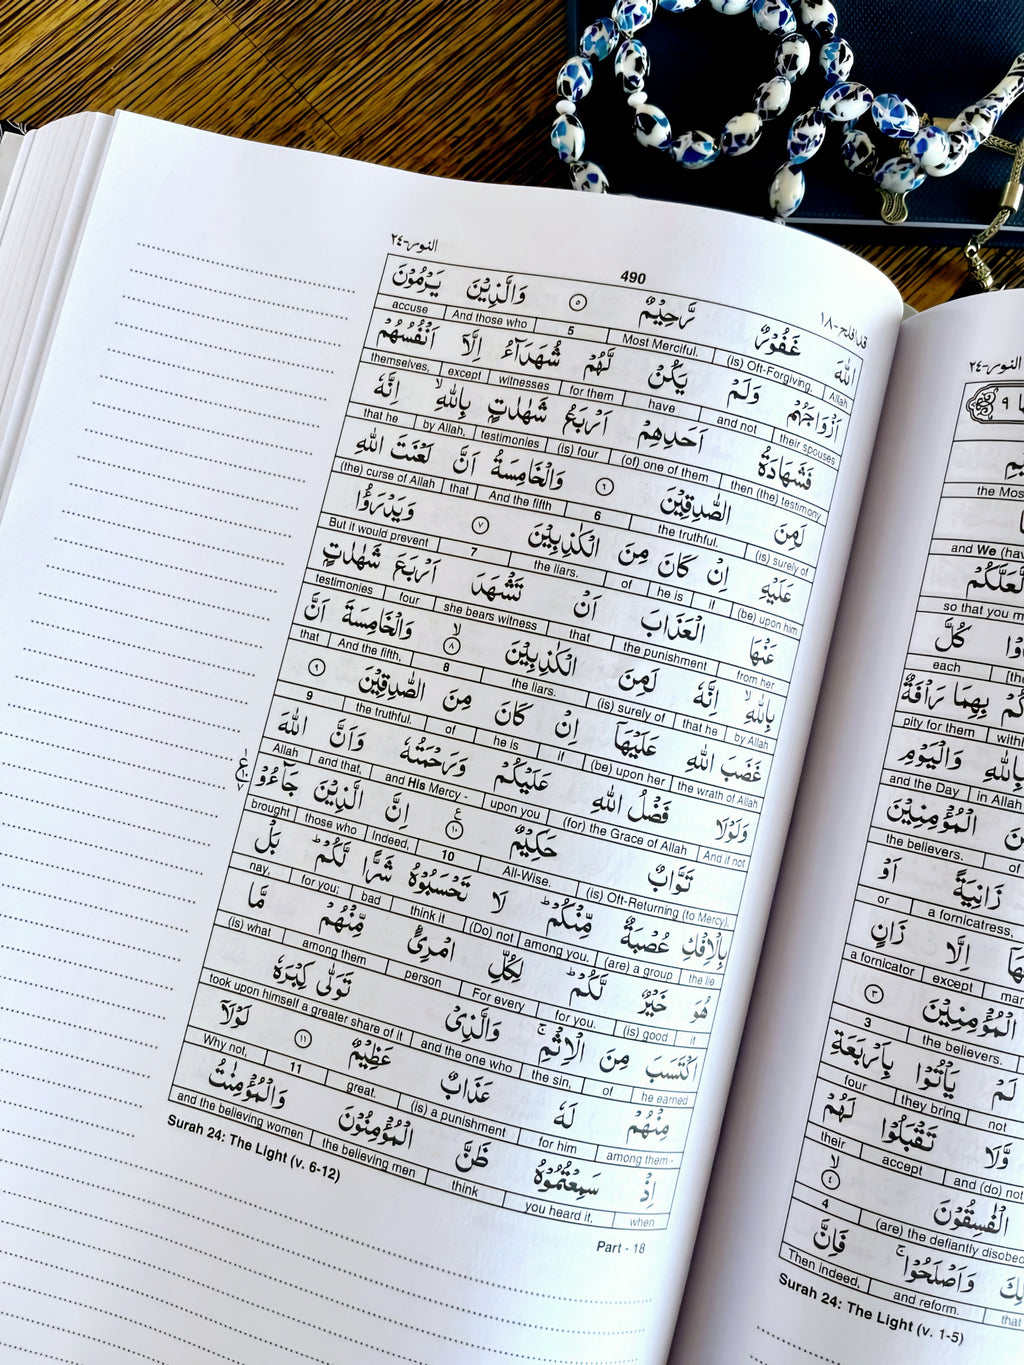 النور-٢٤
490
قد افلح-١٨
اللهَ غَفُوْرٌ رَّحِيْمٌ ٥ وَالَّذِيْنَ يَرْمُوْنَ
Allah (is) Oft-Forgiving, Most Merciful. 5 And those who accuse
اَزْوَاجَهُمْ وَلَمْ يَكُنْ لَّهُمْ شُهَدَآءُ اِلَّآ اَنْفُسُهُمْ
their spouses and not have for them witnesses except themselves,
فَشَهَادَةُ اَحَدِهِمْ اَرْبَعُ شَهٰدٰتٍۭ بِاللهِ ۙ اِنَّهٗ
then (the) testimony (of) one of them (is) four testimonies by Allah, that he
لَمِنَ الصّٰدِقِيْنَ ٦ وَالْخَامِسَةُ اَنَّ لَعْنَتَ اللهِ
(is) surely of the truthful. 6 And the fifth that (the) curse of Allah
عَلَيْهِ اِنْ كَانَ مِنَ الْكٰذِبِيْنَ ٧ وَيَدْرَؤُا
(be) upon him if he is of the liars. 7 But it would prevent
عَنْهَا الْعَذَابَ اَنْ تَشْهَدَ اَرْبَعَ شَهٰدٰتٍۭ
from her the punishment that she bears witness four testimonies
بِاللهِ ۙ اِنَّهٗ لَمِنَ الْكٰذِبِيْنَ ٨ ۙ وَالْخَامِسَةَ اَنَّ
by Allah that he (is) surely of the liars. 8 And the fifth, that
غَضَبَ اللهِ عَلَيْهَآ اِنْ كَانَ مِنَ الصّٰدِقِيْنَ ٩
the wrath of Allah (be) upon her if he is of the truthful. 9
وَلَوْلَا فَضْلُ اللهِ عَلَيْكُمْ وَرَحْمَتُهٗ وَاَنَّ اللهَ
And if not (for) the Grace of Allah upon you and His Mercy - and that, Allah
تَوَّابٌ حَكِيْمٌ ١٠ ع اِنَّ الَّذِيْنَ جَآءُوْ
(is) Oft-Returning (to Mercy), All-Wise. 10 Indeed, those who brought
بِالْاِفْكِ عُصْبَةٌ مِّنْكُمْ ؕ لَا تَحْسَبُوْهُ شَرًّا لَّكُمْ ؕ بَلْ
the lie (are) a group among you. (Do) not think it bad for you; nay,
هُوَ خَيْرٌ لَّكُمْ ؕ لِكُلِّ امْرِئٍ مِّنْهُمْ مَّا
it (is) good for you. For every person among them (is) what
اكْتَسَبَ مِنَ الْاِثْمِ ۚ وَالَّذِيْ تَوَلّٰى كِبْرَهٗ
he earned of the sin, and the one who took upon himself a greater share of it
مِنْهُمْ لَهٗ عَذَابٌ عَظِيْمٌ ١١ لَوْلَآ
among them - for him (is) a punishment great. 11 Why not,
اِذْ سَمِعْتُمُوْهُ ظَنَّ الْمُؤْمِنُوْنَ وَالْمُؤْمِنٰتُ
when you heard it, think the believing men and the believing women
Surah 24: The Light (v. 6-12)
Part - 18
النور-٢٤
the Most
and We (hav
لَّعَلَّكُمْ
so that you m
كُلَّ
each
بِهِمَا رَاْفَةٌ
pity for them
بِاللهِ وَالْيَوْمِ
in Allah and the Day
الْمُؤْمِنِيْنَ
of the believers.
زَانِيَةً اَوْ
a fornicatress, or
اِلَّا زَانٍ
except a fornicator
الْمُؤْمِنِيْنَ ٣
the believers. 3
لَمْ يَاْتُوْا بِاَرْبَعَةِ
not they bring four
وَّلَا تَقْبَلُوْا لَهُمْ
and (do) not accept their
الْفٰسِقُوْنَ ٤ ۙ
(are) the defiantly disobed 4
وَاَصْلَحُوْا ۚ فَاِنَّ
that and reform. Then indeed,
Surah 24: The Light (v. 1-5)